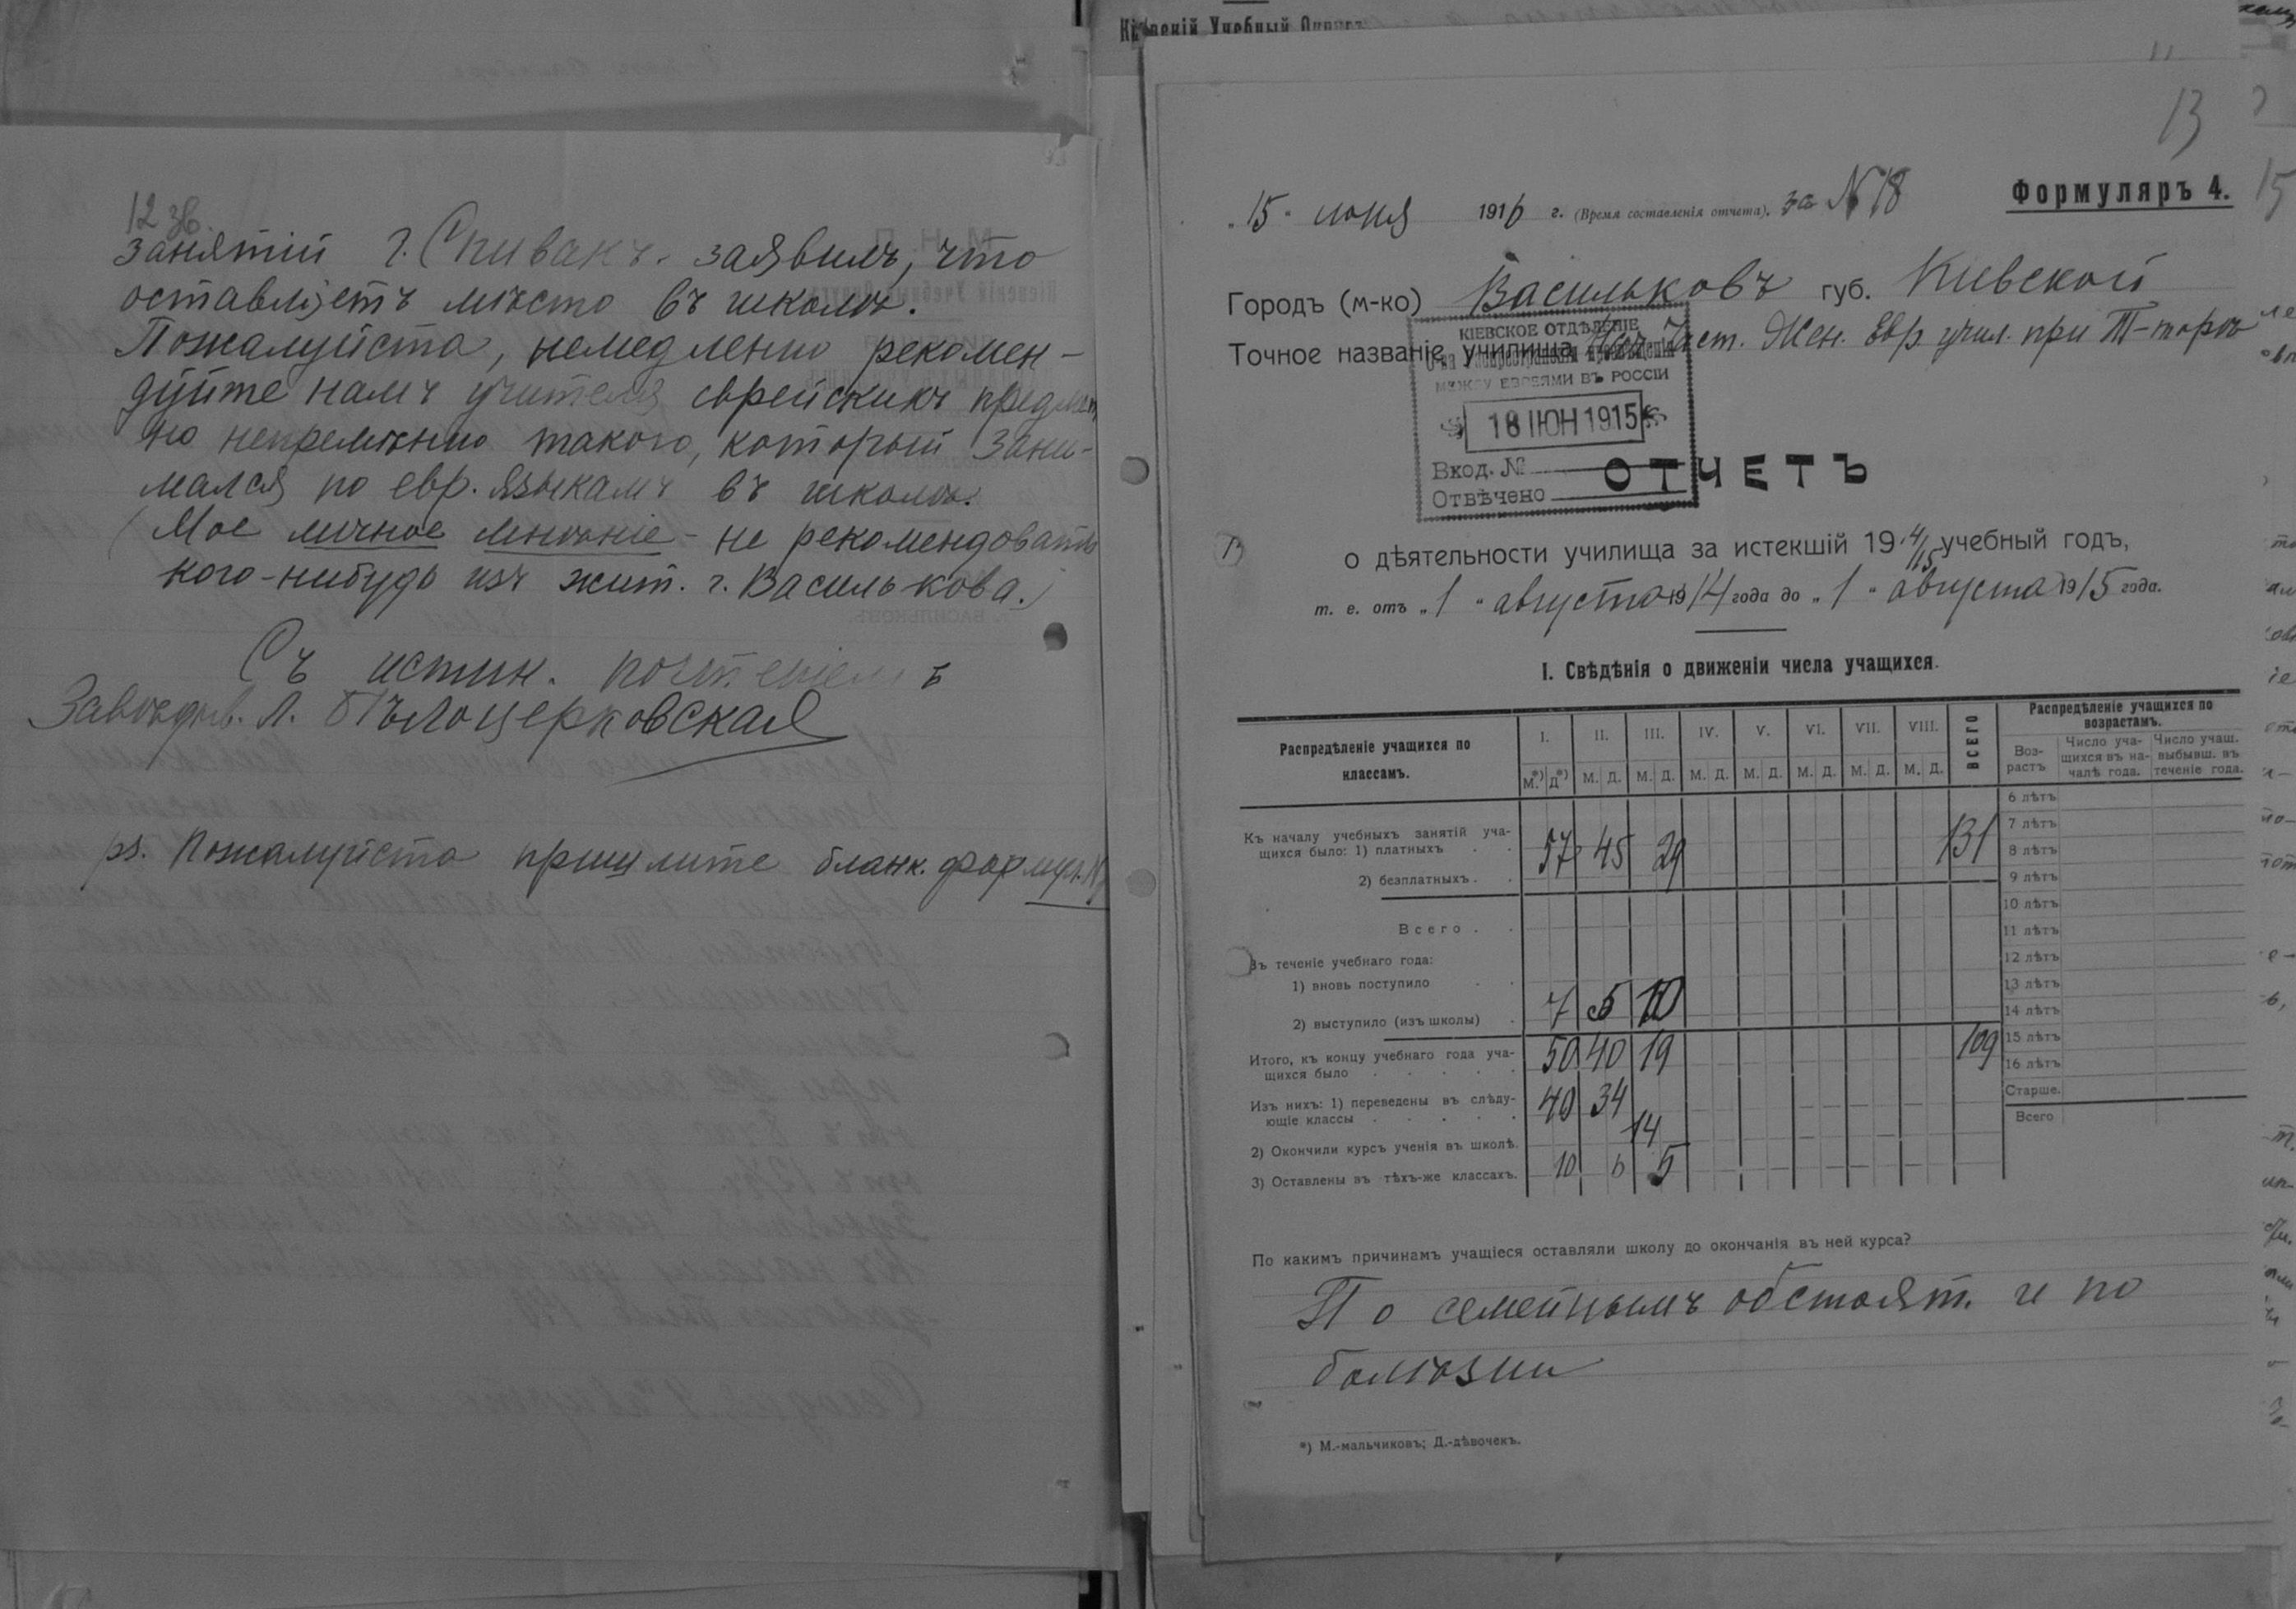 12 зв.
занятій г. Спивакъ заявилъ, что
оставляетъ мѣсто въ школѣ.
Пожалуйста, немедленно рекомен-
дуйте намъ учителя еврейскихъ предмет
но непремѣнно такого, который зани-
мался по евр. языкамъ въ школѣ.
(Мое личное мнѣніе - не рекомендовать
кого-нибудь изъ жит. г. Василькова.)
Съ истин. почтеніемъ
Завѣдыв. Л. Бѣлоцерковская
ps. Пожалуйста пришлите бланк. формул.
Кіевскій Учебный Округъ
11
13
15
„15“ іюня 1915 г. (Время составленія отчета). за № 18
Формуляръ 4.
Городъ (м-ко) Васильковъ губ. Кіевской
Точное названіе училища Част. Жен. Евр. учил. при Т-торѣ
КІЕВСКОЕ ОТДѢЛЕНІЕ
О-ва Распространенія просвѣщенія
МЕЖДУ ЕВРЕЯМИ ВЪ РОССІИ
18 ІЮН 1915
Вход. №
Отвѣчено
ОТЧЕТЪ
13
о дѣятельности училища за истекшій 1914/15 учебный годъ,
т. е. отъ „1“ августа 1914 года до „1“ августа 1915 года.
I. Свѣдѣнія о движеніи числа учащихся.
Распредѣленіе учащихся по
классамъ.
I. II. III. IV. V. VI. VII. VIII. ВСЕГО
М.*) Д*) М. Д. М. Д. М. Д. М. Д. М. Д. М. Д. М. Д.
Распредѣленіе учащихся по
возрастамъ.
Воз-
растъ
Число уча-
щихся въ на-
чалѣ года.
Число учащ.
выбывш. въ
теченіе года.
Къ началу учебныхъ занятій уча-
щихся было: 1) платныхъ . . 57 45 29 131
2) безплатныхъ . .
Всего . .
Въ теченіе учебнаго года:
1) вновь поступило . .
2) выступило (изъ школы) . 7 5 10
Итого, къ концу учебнаго года уча-
щихся было . . . . . 50 40 19 109
Изъ нихъ: 1) переведены въ слѣду-
ющіе классы . . . . . 40 34
2) Окончили курсъ ученія въ школѣ. 14
3) Оставлены въ тѣхъ-же классахъ. 10 6 5
6 лѣтъ
7 лѣтъ
8 лѣтъ
9 лѣтъ
10 лѣтъ
11 лѣтъ
12 лѣтъ
13 лѣтъ
14 лѣтъ
15 лѣтъ
16 лѣтъ
Старше.
Всего
По какимъ причинамъ учащіеся оставляли школу до окончанія въ ней курса?
По семейнымъ обстоят. и по
болѣзни
*) М.-мальчиковъ; Д.-дѣвочекъ.